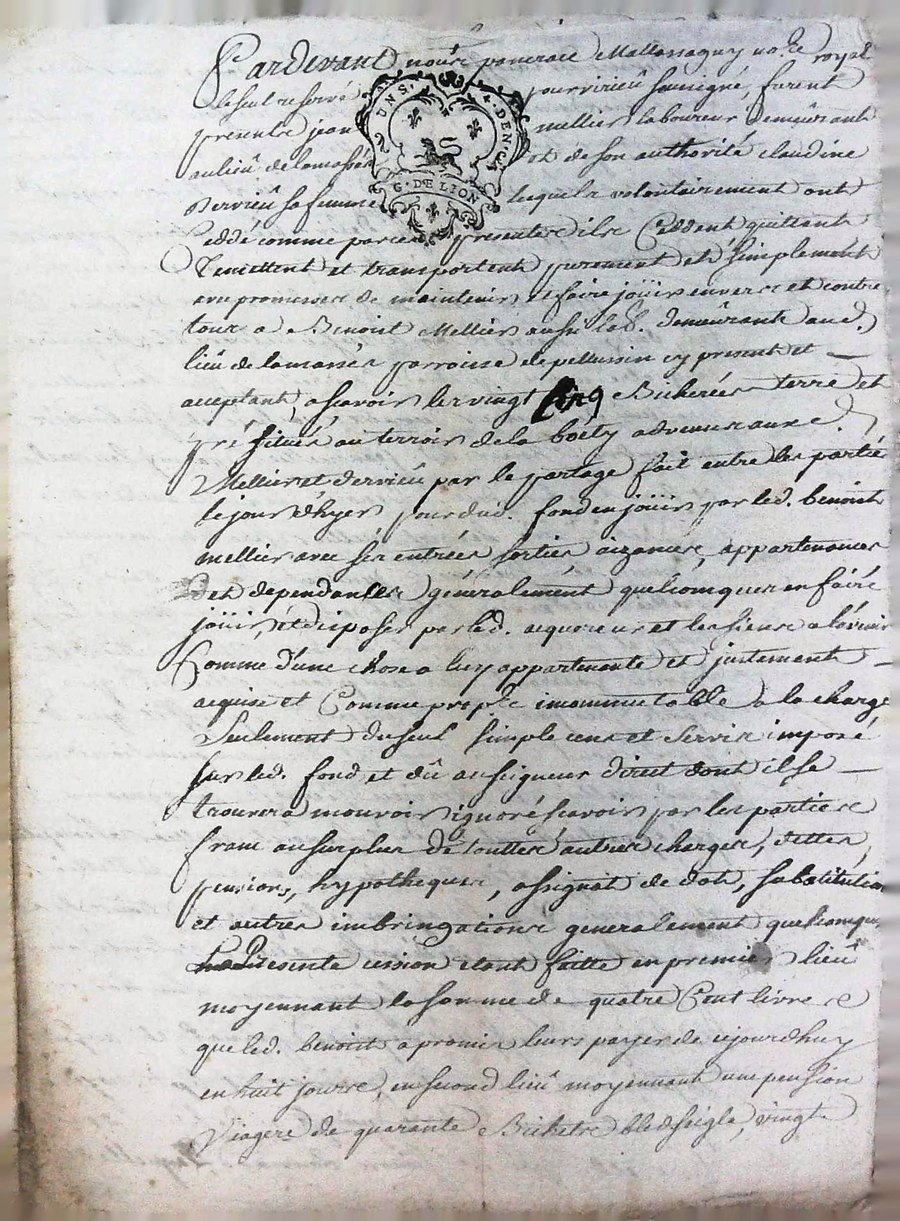 Pardevant nous pancrace Mallassagny no.re royal
le seul reservé pour virieû sousigné, furent
presents jean mellier laboureur demeurant
au lieû de lamasse et de son authorité claudine
Dervieû sa femme lesquels volontairement ont
Ceddé comme par ces presentes ils Ceddent quittent
Remettent et transportent purement et simplement
avec promesse de maintenir et faire joüir envers et contre
tous a Benoist Mellier aussi lab. demeurant aud.
lieû de la masse parroisse de pellussin cy present et
acceptant, a scavoir les vingt cinq Bicherées terre et
pré situés au terroir de la boëty advenus auxd.
Mellier et dervieû par le partage fait entre les partie
le jour d'hyer pour dud. fond en joüir par led. benoist
mellier avec ses entrées sorties aizances, appartenances
et dependances généralement quelconques en faire
joüir, et disposer par led. acquereur et les siens a l'avenir
Comme d'une chose a luy appartenante et justement
acquise et Comme prop.re incommutable a la charge
Seulement du seul simple cens et servis imposé
sur led. fond et dû au seigneur direct dont il se
trouvera mouvoir ignoré scavoir par les parties
franc au surplus de touttes autres charges, dettes,
pensions, hypotheques, assignat de dot, substitution
et autres imbringations generalement quelconques
La Presente cession etant faitte en premier lieû
moyennant la somme de quatre Cent livres
que led. benoist a promis leurs payer de cejourdhuy
en huit jours, en second lieû moyennant une pension
Viagere de quarante Bichets bled seigle, vingt
G. DE LION